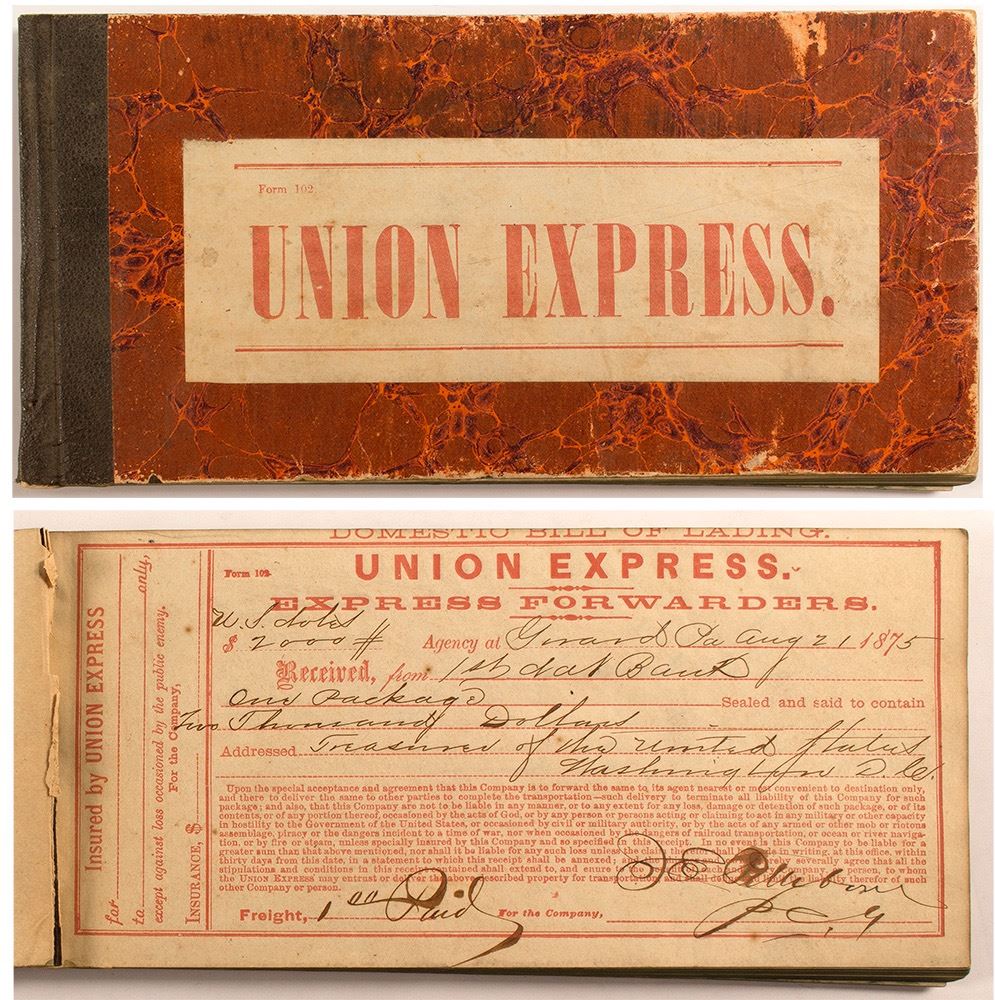 Form 102
UNION EXPRESS.
DOMESTIC BILL OF LADING.
Form 102.
UNION EXPRESS.
EXPRESS FORWARDERS.
U.S. Notes
$ 2000 # Agency at Girard Pa Aug 21 1875
Received, from 1st Nat Bank
One Package Sealed and said to contain
Two Thousand Dollars
Addressed Treasurer of the United States
Washington D.C.
Upon the special acceptance and agreement that this Company is to forward the same to its agent nearest or most convenient to destination only,
and there to deliver the same to other parties to complete the transportation—such delivery to terminate all liability of this Company for such
package; and also, that this Company are not to be liable in any manner, or to any extent for any loss, damage or detention of such package, or of its
contents, or of any portion thereof, occasioned by the acts of God, or by any person or persons acting or claiming to act in any military or other capacity
in hostility to the Government of the United States, or occasioned by civil or military authority, or by the acts of any armed or other mob or riotous
assemblage, piracy or the dangers incident to a time of war, nor when occasioned by the dangers of railroad transportation, or ocean or river naviga-
tion, or by fire or steam, unless specially insured by this Company and so specified in this receipt. In no event is this Company to be liable for a
greater sum than that above mentioned, nor shall it be liable for any such loss unless the claim therefor shall be made in writing, at this office, within
thirty days from this date, in a statement to which this receipt shall be annexed; and the hereby severally agree that all the
stipulations and conditions in this receipt contained shall extend to, and enure to the company, or person, to whom
the UNION EXPRESS may entrust or deliver the above described property for transportation, and shall define the liability therefor of such
other Company or person.
Freight, 1 00 Paid For the Company,
Insured by UNION EXPRESS
for
to only,
except against loss occasioned by the public enemy.
For the Company,
INSURANCE, $